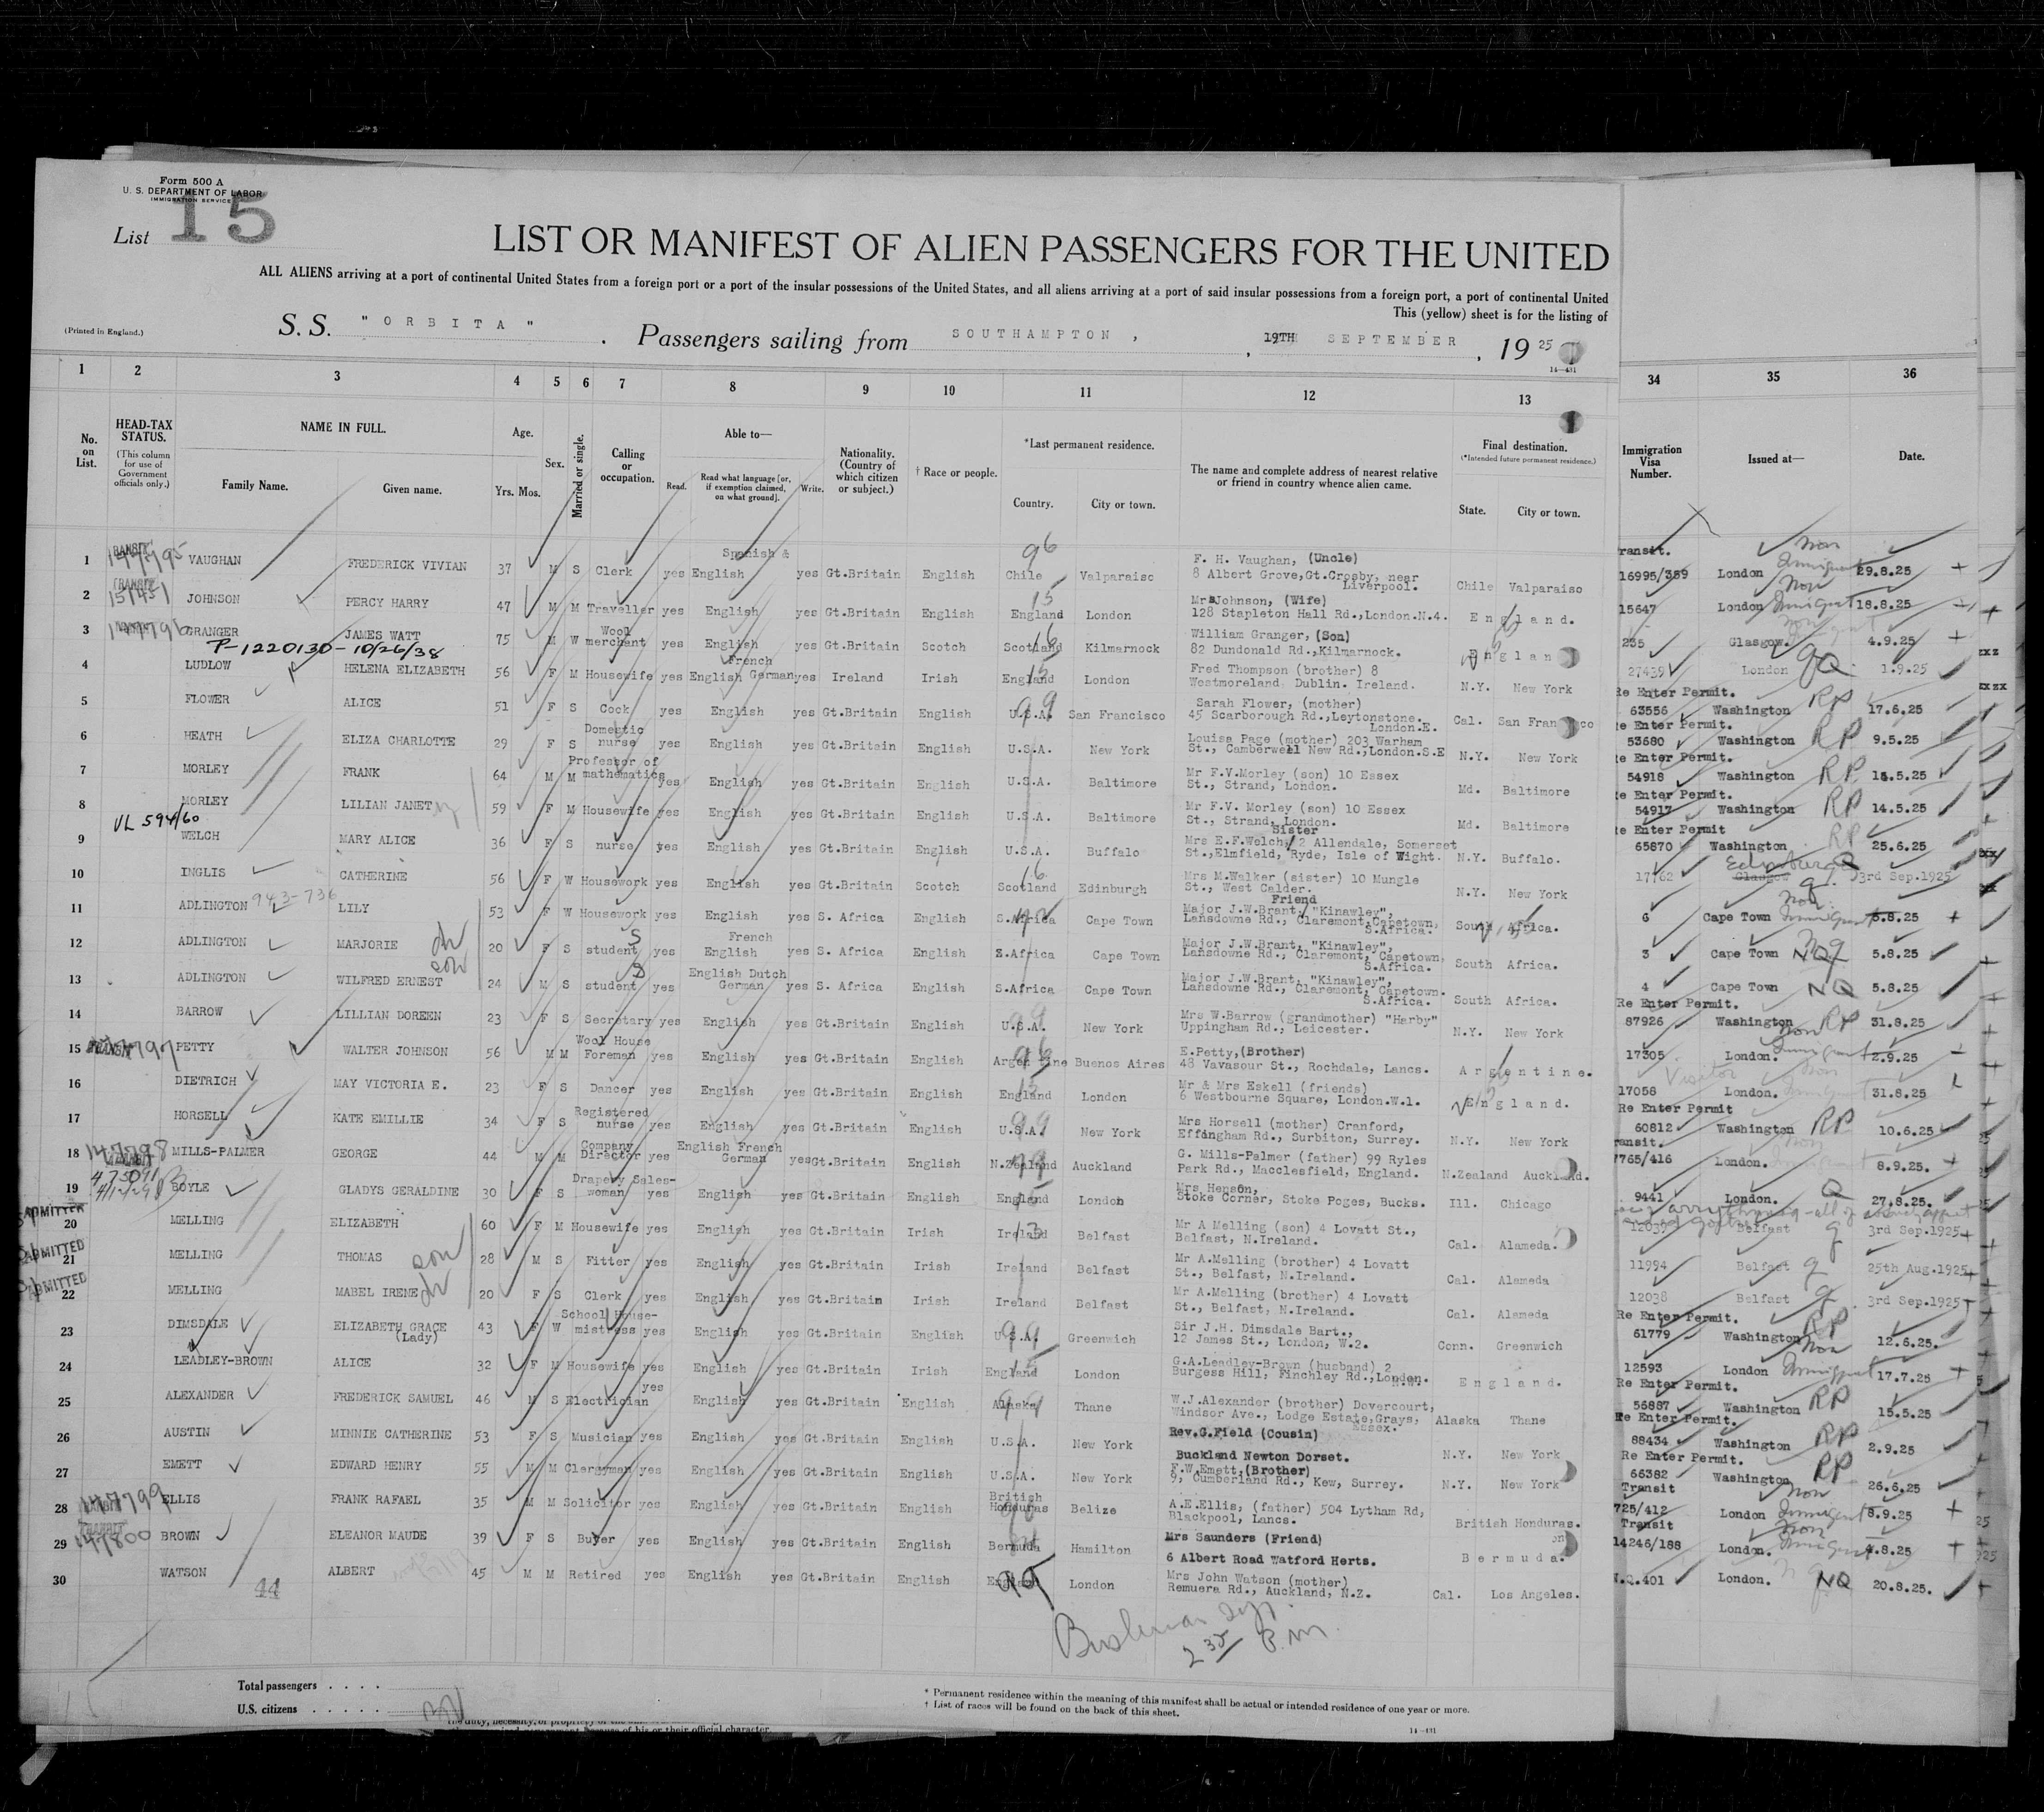 Form 500 A
U. S. DEPARTMENT OF LABOR
IMMIGRATION SERVICE
List 15
LIST OR MANIFEST OF ALIEN PASSENGERS FOR THE UNITED
ALL ALIENS arriving at a port of continental United States from a foreign port or a port of the insular possessions of the United States, and all aliens arriving at a port of said insular possessions from a foreign port, a port of continental United
This (yellow) sheet is for the listing of
(Printed in England.)
S. S. "ORBITA" . Passengers sailing from SOUTHAMPTON, , 19TH SEPTEMBER , 1925
14-431
1 2 3 4 5 6 7 8 9 10 11 12 13 34 35 36
No. on List.
HEAD-TAX STATUS.
(This column for use of Government officials only.)
NAME IN FULL.
Family Name. Given name.
Age.
Yrs. Mos.
Sex.
Married or single.
Calling or occupation.
Able to—
Read. Read what language [or, if exemption claimed, on what ground]. Write.
Nationality. (Country of which citizen or subject.)
† Race or people.
*Last permanent residence.
Country. City or town.
The name and complete address of nearest relative or friend in country whence alien came.
Final destination.
(*Intended future permanent residence.)
State. City or town.
Immigration Visa Number.
Issued at—
Date.
1 VAUGHAN FREDERICK VIVIAN 37 M S Clerk yes Spanish & English yes Gt.Britain English Chile Valparaiso F. H. Vaughan, (Uncle) 8 Albert Grove,Gt.Crosby, near Liverpool. Chile Valparaiso 16995/359 London 29.8.25
2 JOHNSON PERCY HARRY 47 M M Traveller yes English yes Gt.Britain English England London Mrs Johnson, (Wife) 128 Stapleton Hall Rd.,London.N.4. England. 15647 London 18.8.25
3 GRANGER JAMES WATT 75 M W Wool merchant yes English yes Gt.Britain Scotch Scotland Kilmarnock William Granger, (Son) 82 Dundonald Rd.,Kilmarnock. England 235 Glasgow. 4.9.25
P-1220130-10/26/38
4 LUDLOW HELENA ELIZABETH 56 F M Housewife yes French English German yes Ireland Irish England London Fred Thompson (brother) 8 Westmoreland Dublin. Ireland. N.Y. New York 27439 London 1.9.25
5 FLOWER ALICE 51 F S Cook yes English yes Gt.Britain English U.S.A. San Francisco Sarah Flower, (mother) 45 Scarborough Rd.,Leytonstone. London.E. Cal. San Francisco Re Enter Permit. 63556 Washington RP 17.6.25
6 HEATH ELIZA CHARLOTTE 29 F S Domestic nurse yes English yes Gt.Britain English U.S.A. New York Louisa Page (mother) 203 Warham St., Camberwell New Rd.,London.S.E N.Y. New York Re Enter Permit. 53680 Washington RP 9.5.25
7 MORLEY FRANK 64 M M Professor of mathematics yes English yes Gt.Britain English U.S.A. Baltimore Mr F.V.Morley (son) 10 Essex St., Strand, London. Md. Baltimore Re Enter Permit. 54918 Washington RP 15.5.25
8 MORLEY LILIAN JANET 59 F M Housewife yes English yes Gt.Britain English U.S.A. Baltimore Mr F.V. Morley (son) 10 Essex St., Strand, London. Md. Baltimore Re Enter Permit. 54917 Washington RP 14.5.25
VL 594/60
9 WELCH MARY ALICE 36 F S nurse yes English yes Gt.Britain English U.S.A. Buffalo Sister Mrs E.F.Welch, 2 Allendale, Somerset St.,Elmfield, Ryde, Isle of Wight. N.Y. Buffalo. Re Enter Permit 65870 Washington RP 25.6.25
10 INGLIS CATHERINE 56 F W Housework yes English yes Gt.Britain Scotch Scotland Edinburgh Mrs M.Walker (sister) 10 Mungle St., West Calder. N.Y. New York 17162 Glasgow Edinburgh Q 3rd Sep.1925
11 ADLINGTON 943-736 LILY 53 F W Housework yes English yes S. Africa English S.Africa Cape Town Friend Major J.W.Brant, "Kinawley", Lansdowne Rd., Claremont,Capetown, S.Africa. South Africa. 6 Cape Town 5.8.25
12 ADLINGTON MARJORIE 20 F S student yes French English yes S. Africa English S.Africa Cape Town Major J.W.Brant, "Kinawley", Lansdowne Rd., Claremont, Capetown, S.Africa. South Africa. 3 Cape Town NQ 5.8.25
13 ADLINGTON WILFRED ERNEST son 24 M S student yes English Dutch German yes S. Africa English S.Africa Cape Town Major J.W.Brant, "Kinawley", Lansdowne Rd., Claremont, Capetown. S.Africa. South Africa. 4 Cape Town NQ 5.8.25
14 BARROW LILLIAN DOREEN 23 F S Secretary yes English yes Gt.Britain English U.S.A. New York Mrs W.Barrow (grandmother) "Harby" Uppingham Rd., Leicester. N.Y. New York Re Enter Permit. 87926 Washington RP 31.8.25
15 PETTY WALTER JOHNSON 56 M M Wool House Foreman yes English yes Gt.Britain English Argentine Buenos Aires E.Petty,(Brother) 43 Vavasour St., Rochdale, Lancs. Argentine. 17305 London. 2.9.25
16 DIETRICH MAY VICTORIA E. 23 F S Dancer yes English yes Gt.Britain English England London Mr & Mrs Eskell (friends) 6 Westbourne Square, London.W.1. England. Visitor 17058 London. 31.8.25
17 HORSELL KATE EMILLIE 34 F S Registered nurse yes English yes Gt.Britain English U.S.A. New York Mrs Horsell (mother) Cranford, Effingham Rd., Surbiton, Surrey. N.Y. New York Re Enter Permit 60812 Washington RP 10.6.25
18 147798 MILLS-PALMER GEORGE 44 M M Company Director yes English French German yes Gt.Britain English N.Zealand Auckland G. Mills-Palmer (father) 99 Ryles Park Rd., Macclesfield, England. N.Zealand Auckland. 7765/416 London. 8.9.25.
19 BOYLE GLADYS GERALDINE 30 F S Drapery Saleswoman yes English yes Gt.Britain English England London Mrs Henson, Stoke Corner, Stoke Poges, Bucks. Ill. Chicago 9441 London. Q 27.8.25.
20 ADMITTED MELLING ELIZABETH 60 F M Housewife yes English yes Gt.Britain Irish Ireland Belfast Mr A Melling (son) 4 Lovatt St., Belfast, N.Ireland. Cal. Alameda. 12039 Belfast 3rd Sep.1925
21 ADMITTED MELLING THOMAS son 28 M S Fitter yes English yes Gt.Britain Irish Ireland Belfast Mr A.Melling (brother) 4 Lovatt St., Belfast, N.Ireland. Cal. Alameda 11994 Belfast 25th Aug.1925
22 ADMITTED MELLING MABEL IRENE 20 F S Clerk yes English yes Gt.Britain Irish Ireland Belfast Mr A.Melling (brother) 4 Lovatt St., Belfast, N.Ireland. Cal. Alameda 12038 Belfast 3rd Sep.1925
23 DIMSDALE ELIZABETH GRACE (Lady) 43 F W School House-mistress yes English yes Gt.Britain English U.S.A. Greenwich Sir J.H. Dimsdale Bart., 12 James St., London, W.2. Conn. Greenwich Re Enter Permit. 61779 Washington RP 12.6.25.
24 LEADLEY-BROWN ALICE 32 F M Housewife yes English yes Gt.Britain Irish England London G.A.Leadley-Brown (husband) 2 Burgess Hill, Finchley Rd.,London. England. 12593 London 17.7.25
25 ALEXANDER FREDERICK SAMUEL 46 M S Electrician yes English yes Gt.Britain English Alaska Thane W.J.Alexander (brother) Dovercourt, Windsor Ave., Lodge Estate,Grays, Essex. Alaska Thane Re Enter Permit. 56887 Washington RP 15.5.25
26 AUSTIN MINNIE CATHERINE 53 F S Musician yes English yes Gt.Britain English U.S.A. New York Rev.G.Field (Cousin) Buckland Newton Dorset. N.Y. New York Re Enter Permit. 88434 Washington RP 2.9.25
27 EMETT EDWARD HENRY 55 M M Clergyman yes English yes Gt.Britain English U.S.A. New York F.W.Emett,(Brother) 9, Cumberland Rd., Kew, Surrey. N.Y. New York Re Enter Permit. 66382 Washington RP 26.6.25
28 147799 ELLIS FRANK RAFAEL 35 M M Solicitor yes English yes Gt.Britain English British Honduras Belize A.E.Ellis, (father) 504 Lytham Rd, Blackpool, Lancs. British Honduras. Transit 725/412 London 8.9.25
29 147800 BROWN ELEANOR MAUDE 39 F S Buyer yes English yes Gt.Britain English Bermuda Hamilton Mrs Saunders (Friend) 6 Albert Road Watford Herts. Bermuda. Transit 14246/188 London. 4.8.25
30 WATSON ALBERT 45 M M Retired yes English yes Gt.Britain English England London Mrs John Watson (mother) Remuera Rd., Auckland, N.Z. Cal. Los Angeles. 401 London. NQ 20.8.25.
44
2 35 P.M.
Total passengers . . . .
U.S. citizens . . . . .
* Permanent residence within the meaning of this manifest shall be actual or intended residence of one year or more.
† List of races will be found on the back of this sheet.
14-431